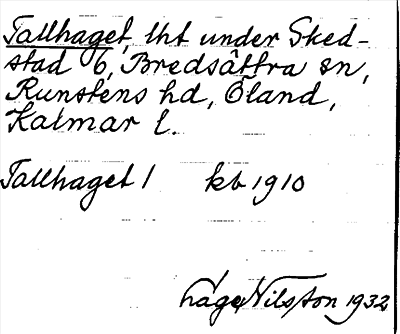 Tallhaget, lht under Sked-
stad 6, Bredsättra sn,
Runstens hd, Öland,
Kalmar l.
Tallhaget 1 kb 1910
Åke Nilsson 1932